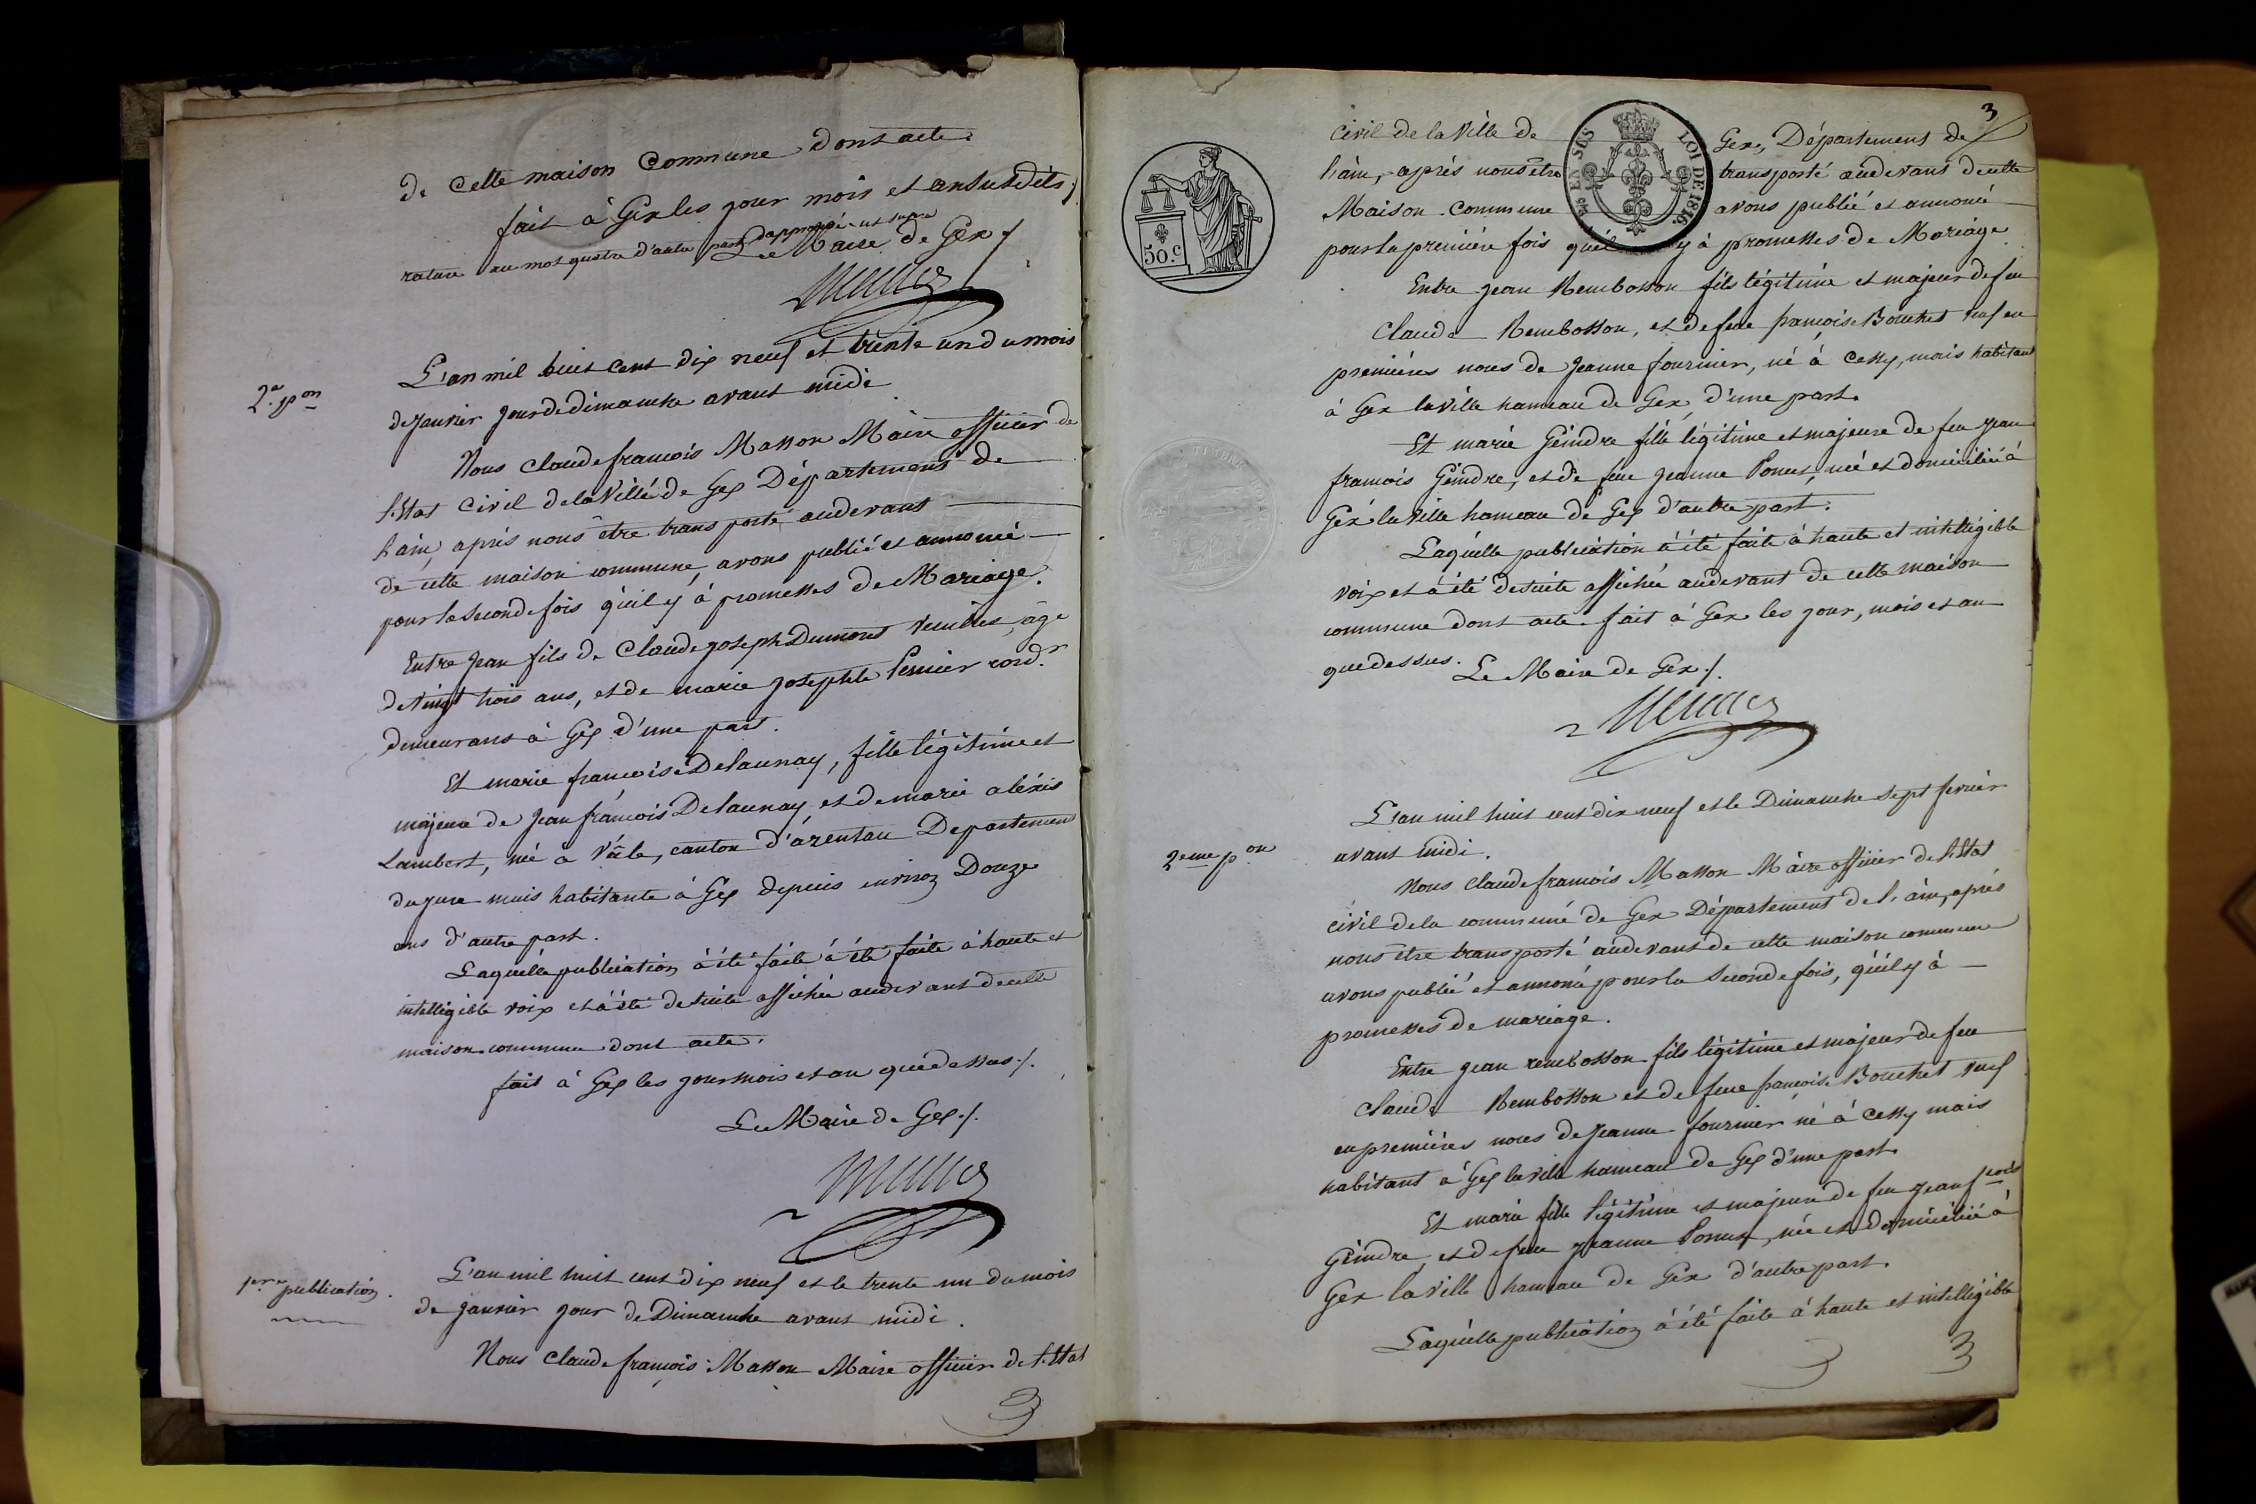 de cette maison Commune dont acte.
fait à Gex les jour mois et an susdits /.
rature au mot quatre d'autre part d'approuvé ut supra
Le Maire de Gex /.
2e. pon
L'an mil huit cent dix neuf et trente un du mois
de Janvier jour de dimanche avant midi
Nous Claude françois Masson Maire officier de
l'Etat Civil de la Ville de Gex Département de
l'ain, après nous être transporté audevant
de cette maison commune, avons publié et annoncé
pour la seconde fois qu'il y à promesses de Mariage.
Entre Jean fils de Claude joseph Dumont âgé
de Vingt trois ans, et de marie josephte
demeurans à Gex d'une part.
Et marie françoise Delaunay, fille légitime et
majeure de Jean françois Delaunay et de marie aléxis
Lambert, née à canton d'arentau Departement
du jura mais habitante à Gex depuis environ Douze
ans d'autre part.
Laquelle publication à été faite à été faite à haute et
intelligible voix et à été de suite affichée audevant de cette
maison commune dont acte.
fait à Gex les jour mois et an que dessus /.
Le Maire de Gex /.
1ere publication.
L'an mil huit cent dix neuf et le trente un du mois
de janvier jour de Dimanche avant midi.
Nous Claude françois Masson Maire officier de l'Etat
3
3
civil de la Ville de Gex, Département de
l'ain, après nous être transporté audevant de cette
Maison Commune avons publié et annoncé
pour la première fois qu'il y à promesses de Mariage
50.C
EN SUS
LOI DE 1816.
Entre jean Rembosson fils légitime et majeur de feu
Claude Rembosson, et de feue françoise Bouchet veuf en
premières noces de Jeanne fournier, né à Cessy, mais habitant
à Gex la ville hameau de Gex d'une part.
Et marie Geindre fille légitime et majeure de feu jean
françois Geindre, et de feue jeanne Poncet, née et domiciliée à
Gex la Ville hameau de Gex d'autre part.
Laquelle publication à été faite à haute et intelligible
voix et à été de suite affichée audevant de cette maison
commune dont acte. fait à Gex les jour, mois et an
que dessus. Le Maire de Gex /.
2eme pon
L'an mil huit cent dix neuf et le Dimanche sept fevrier
avant midi.
Nous Claude françois Masson Maire officier de l'Etat
civil de la commune de Gex Département de l'ain, après
nous être transporté audevant de cette maison commune
avons publié et annoncé pour la seconde fois, qu'il y à
promesses de mariage.
Entre jean rembosson fils légitime et majeur de feu
Claude Rembosson et de feue françoise Bouchet veuf
en premières noces de jeanne fournier né à Cessy mais
habitant à Gex la ville hameau de Gex d'une part.
Et marie fille légitime et majeure de feu jean fçois
Geindre, et de feue jeanne Poncet, née et domiciliée à
Gex la Ville hameau de Gex d'autre part.
Laquelle publication à été faite à haute et intelligible
3
3